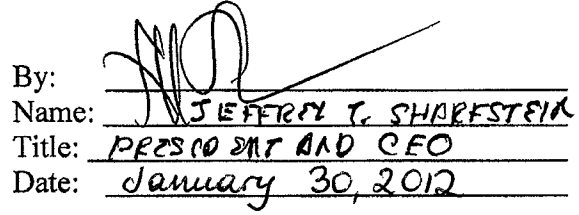 By:
Name: JEFFREY T. SHARFSTEIN
Title: PRESIDENT AND CEO
Date: January 30, 2012